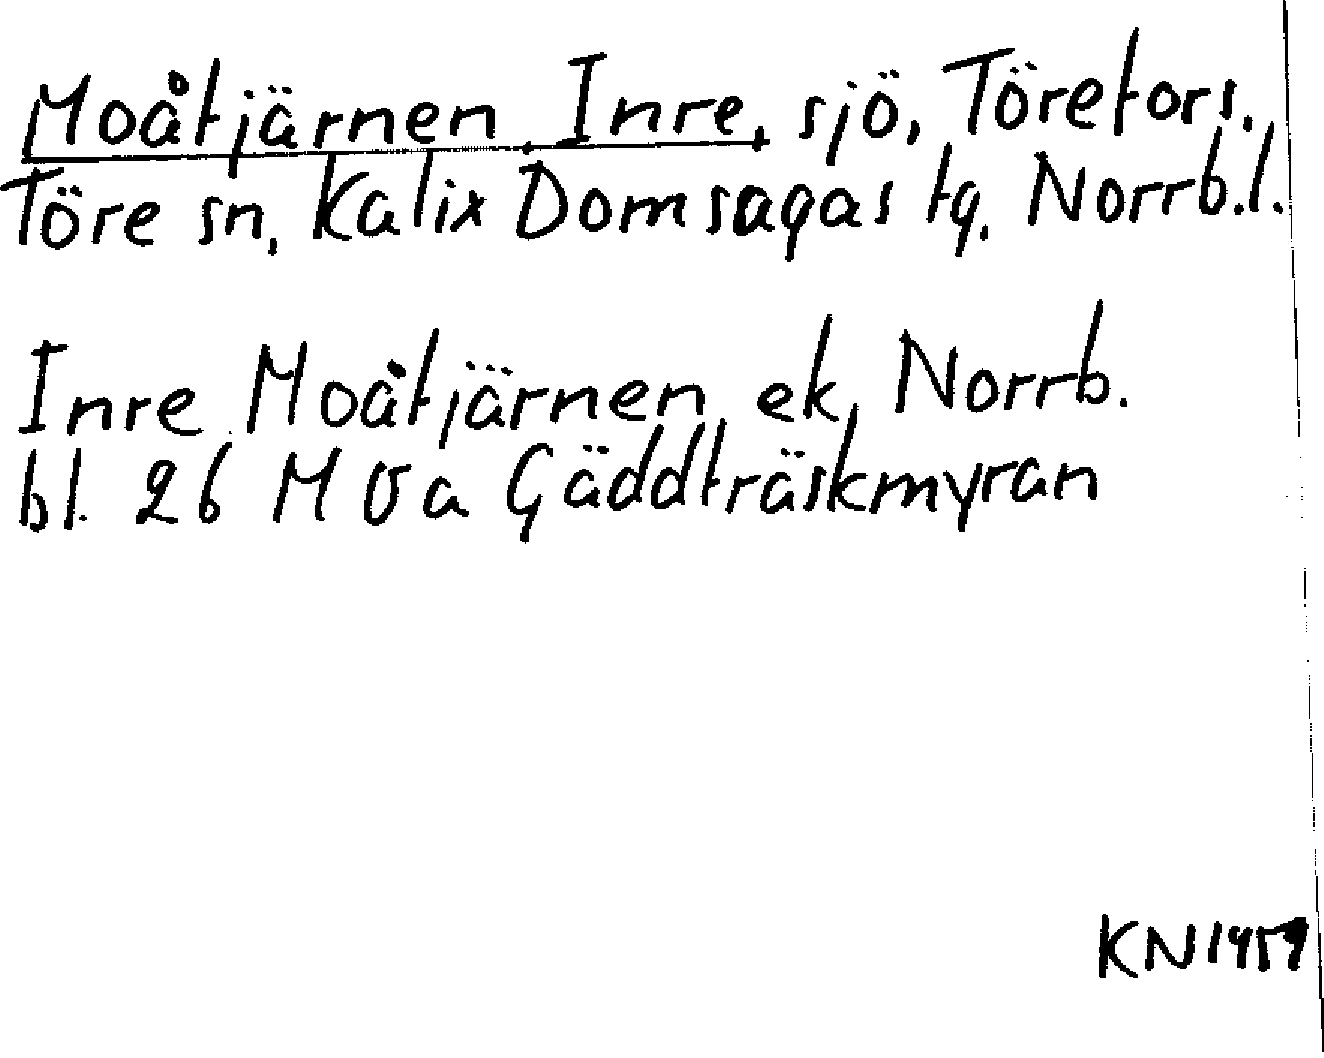 Moåtjärnen, Inre, sjö, Törefors,
Töre sn, Kalix Domsagas tg, Norrb.l.
Inre Moåtjärnen, ek, Norrb.
bl. 26 M va Gäddträskmyran